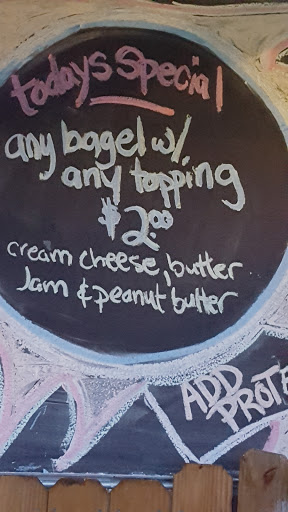 todays special
any bagel w/
any topping
$2.00
cream cheese, butter
Jam & peanut butter
ADD